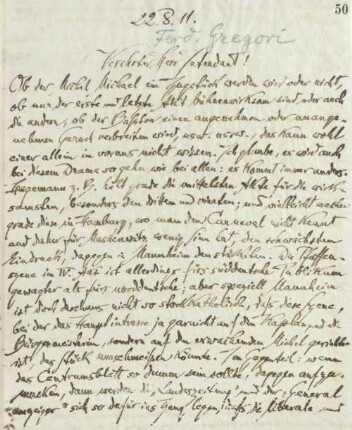 50
22.8.11.
Ferd. Gregori
Verehrter Herr Intendant!
Ob der Michel Michael ein Zugstück werden wird oder nicht,
ob nur der erste und letzte Akt bühnenwirksam sind oder auch
die andern, ob der Bußton einen angenehmen oder unange-
nehmen Geruch verbreiten wird, usw. usw., das kann wohl
einer allein im voraus nicht wissen. Ich glaube, es wird auch
bei diesem Drama so gehn wie bei allen: es kommt immer anders.
z. B. hält grade die mittelsten Akte für die wirk-
samsten, besonders den dritten und vierten; und vielleicht werden
grade diese in Hamburg, wo man den Carneval nicht kennt
und daher für Maskenwitz wenig Sinn hat, den schwächsten
Eindruck, dagegen in Mannheim den stärksten. Die Pfaffen-
szene im IV. Akt ist allerdings fürs süddeutsche Publikum
gewagter als fürs norddeutsche; aber speziell Mannheim
ist doch durchaus nicht so stockkatholisch, daß diese Szene,
bei der das Hauptintresse ja garnicht auf den Kaplan und die
Bürgermeisterin, sondern auf den erwachenden Michel gerichtet
ist, das Stück umschmeißen könnte. Im Gegenteil: wenn
das Centrumsblatt so dumm sein sollte, dagegen aufzu-
mucken, dann werden die Landeszeitung und der „General
anzeiger" sich so dafür ins Zeug legen, die liberale und